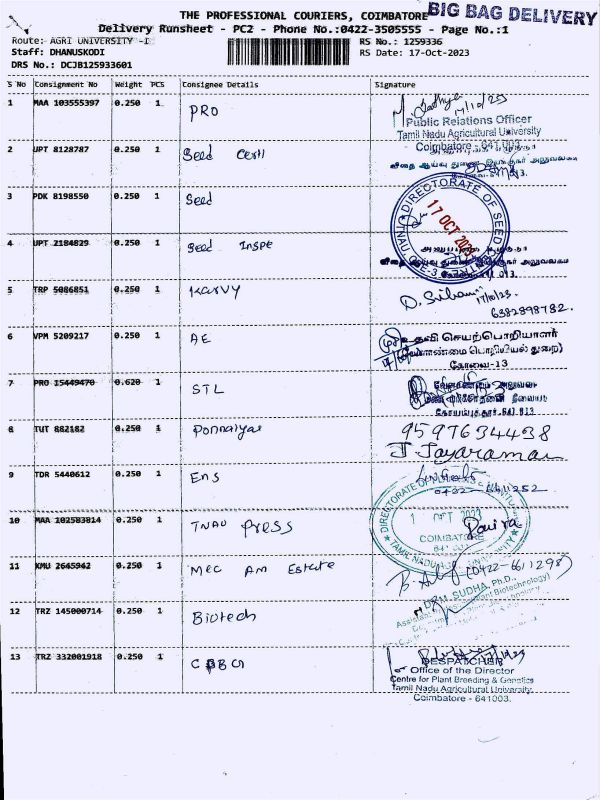 THE PROFESSIONAL COURIERS, COIMBATORE BIG BAG DELIVERY
Delivery Runsheet - PC2 - Phone No.:0422-3505555 - Page No.:1
Route: AGRI UNIVERSITY -I RS No.: 1259336
Staff: DHANUSKODI RS Date: 17-Oct-2023
DRS No.: DCJB125933601
S No Consignment No Weight PCS Consignee Details Signature
1 MAA 103555397 0.250 1 PRO 17/10/23
Public Relations Officer
Tamil Nadu Agricultural University
Coimbatore - 641 003.
2 UPT 8128787 0.250 1 Seed Certi
3 PDK 8198550 0.250 1 Seed
DIRECTORATE OF SEED
17 OCT 2023
4 UPT 2184829 0.250 1 Seed Inspe
5 TRP 5086851 0.250 1 Karvy D. 17/10/23.
6382898782.
6 VPM 5209217 0.250 1 AE
உதவி செயற்பொறியாளர்
(வேளாண்மை பொறியியல் துறை)
கோவை-13
7 PRO 15449470 0.620 1 STL
கோயம்புத்தூர்-641 013
8 TUT 882182 0.250 1 Ponnaiyar 9597634438
J. Jayaraman
9 TDR 5440612 0.250 1 Ens
0422-6611252
10 MAA 102583814 0.250 1 TNAU Press
COIMBATORE
11 KMU 2645942 0.250 1 Mec Am Estate (0422-6611298)
12 TRZ 145000714 0.250 1 Biotech
SUDHA, Ph.D.,
13 TRZ 332001918 0.250 1
DESPATCHER
Office of the Director
Centre for Plant Breeding & Genetics
Tamil Nadu Agricultural University
Coimbatore - 641003.